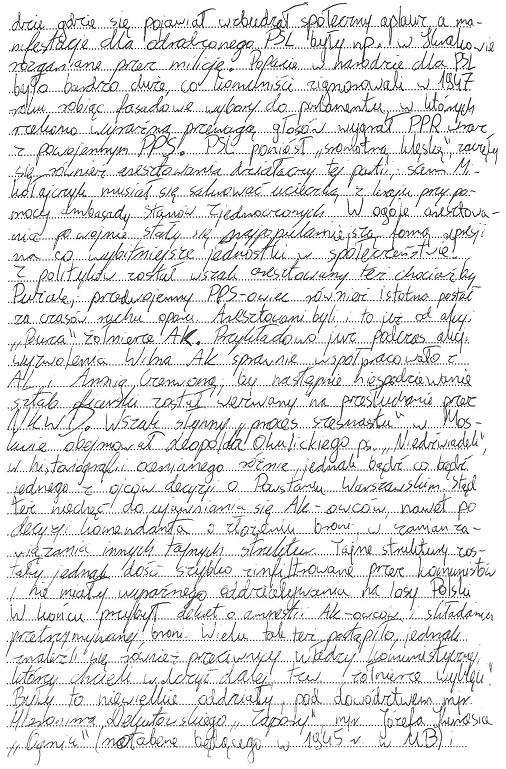 dzie gdzie się pojawiał wzbudzał społeczny aplauz a ma-
nifestacje dla odrodzonego PSL były np. w Krakowie
rozganiane przez milicję. Poparcie w narodzie dla PSL
było bardzo duże, co komuniści zignorowali w 1947
roku robiąc fasadowe wybory do parlamentu, w których
rzekomo wyraźną przewagą głosów wygrał PPR wraz
z powojennym PPS. PSL poniósł „sromotną klęskę", zaczęły
się również aresztowania działaczy tej partii, sam Mi-
kołajczyk musiał się salwować ucieczką z kraju przy po-
mocy Ambasady Stanów Zjednoczonych. W ogóle aresztowa-
nia po wojnie stały się najpopularniejszą formą represji
na co wybitniejsze jednostki w społeczeństwie.
Z polityków został wszak aresztowany też chociażby
Pużak, przedwojenny PPS-owiec również istotna postać
za czasów ruchu oporu. Aresztowani byli i to już od akcji
„Burza" żołnierze AK. Przykładowo już podczas akcji
wyzwolenia Wilna AK sprawnie współpracowało z
AL i Armią Czerwoną, by następnie niespodziewanie
sztab oficerski został wezwany na przesłuchanie przez
NKWD. Wszak słynny „proces szesnastu" w Mos-
kwie obejmował Leopolda Okulickiego ps. „Niedźwiadek",
w historiografii ocenianego różnie jednak bądź co bądź
jednego z ojców decyzji o Powstaniu Warszawskim. Stąd
też niechęć do ujawniania się AK-owców, nawet po
decyzji komendanta o złożeniu broni w zamian za-
wiązania innych tajnych struktur. Tajne struktury zos-
tały jednak dość szybko zinfiltrowane przez komunistów
i nie miały wyraźnego oddziaływania na losy Polski
W końcu przybył dekret o amnestii AK-owców i składania
przetrzymywanej broni. Wielu tak też postąpiło, jednak
znaleźli się również przeciwnicy władzy komunistycznej,
którzy chcieli walczyć dalej, tzw. „żołnierze wyklęci".
Były to niewielkie oddziały, pod dowództwem mjr.
Hieronima Dekutowskiego „Zapory", mjr. Józefa Kurasia
„Ognia" (notabene będącego w 1945 r w UB) i